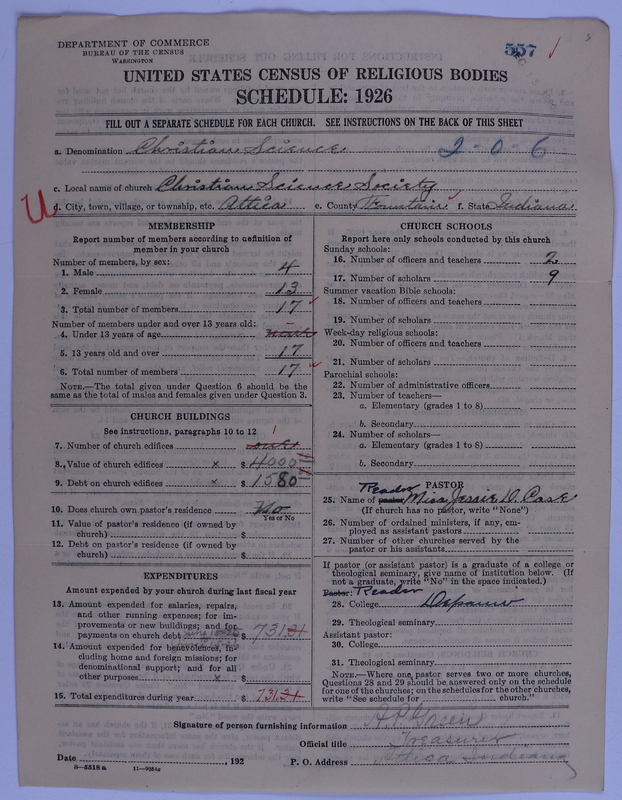 DEPARTMENT OF COMMERCE
BUREAU OF THE CENSUS
WASHINGTON
557
UNITED STATES CENSUS OF RELIGIOUS BODIES
SCHEDULE: 1926
FILL OUT A SEPARATE SCHEDULE FOR EACH CHURCH. SEE INSTRUCTIONS ON THE BACK OF THIS SHEET
a. Denomination Christian Science 2-0-6
c. Local name of church Christian Science Society
U
d. City, town, village, or township, etc. Attica e. County Fountain f. State Indiana
MEMBERSHIP
Report number of members according to definition of
member in your church
Number of members, by sex:
1. Male 4
2. Female 13
3. Total number of members 17
Number of members under and over 13 years old:
4. Under 13 years of age
5. 13 years old and over 17
6. Total number of members 17
NOTE.—The total given under Question 6 should be
same as the total of males and females given under Question 3.
CHURCH BUILDINGS
See instructions, paragraphs 10 to 12
7. Number of church edifices one 1
8. Value of church edifices x $ 4000
9. Debt on church edifices x $ 1580
10. Does church own pastor's residence No
Yes or No
11. Value of pastor's residence (if owned by
church) $
12. Debt on pastor's residence (if owned by
church) $
EXPENDITURES
Amount expended by your church during last fiscal year
13. Amount expended for salaries, repairs,
and other running expenses; for im-
provements or new buildings; and for
payments on church debt $ 731.31
14. Amount expended for benevolences, in-
cluding home and foreign missions; for
denominational support; and for all
other purposes x $
15. Total expenditures during year $ 731.31
CHURCH SCHOOLS
Report here only schools conducted by this church
Sunday schools:
16. Number of officers and teachers 2
17. Number of scholars 9
Summer vacation Bible schools:
18. Number of officers and teachers
19. Number of scholars
Week-day religious schools:
20. Number of officers and teachers
21. Number of scholars
Parochial schools:
22. Number of administrative officers
23. Number of teachers—
a. Elementary (grades 1 to 8)
b. Secondary
24. Number of scholars—
a. Elementary (grades 1 to 8)
b. Secondary
PASTOR
Reader
25. Name of pastor Miss Jessie D. Case
(If church has no pastor, write "None")
26. Number of ordained ministers, if any, em-
ployed as assistant pastors
27. Number of other churches served by the
pastor or his assistants
If pastor (or assistant pastor) is a graduate of a college or
theological seminary, give name of institution below. (If
not a graduate, write "No" in the space indicated.)
Pastor: Reader
28. College Depauw
29. Theological seminary
Assistant pastor:
30. College
31. Theological seminary
NOTE.—Where one pastor serves two or more churches,
Questions 28 and 29 should be answered only on the schedule
for one of the churches; on the schedules for the other churches,
write "See schedule for church."
Signature of person furnishing information H.P. Green
Official title Treasurer
Date , 192 P. O. Address Attica Indiana
8—5518a 11—9051g